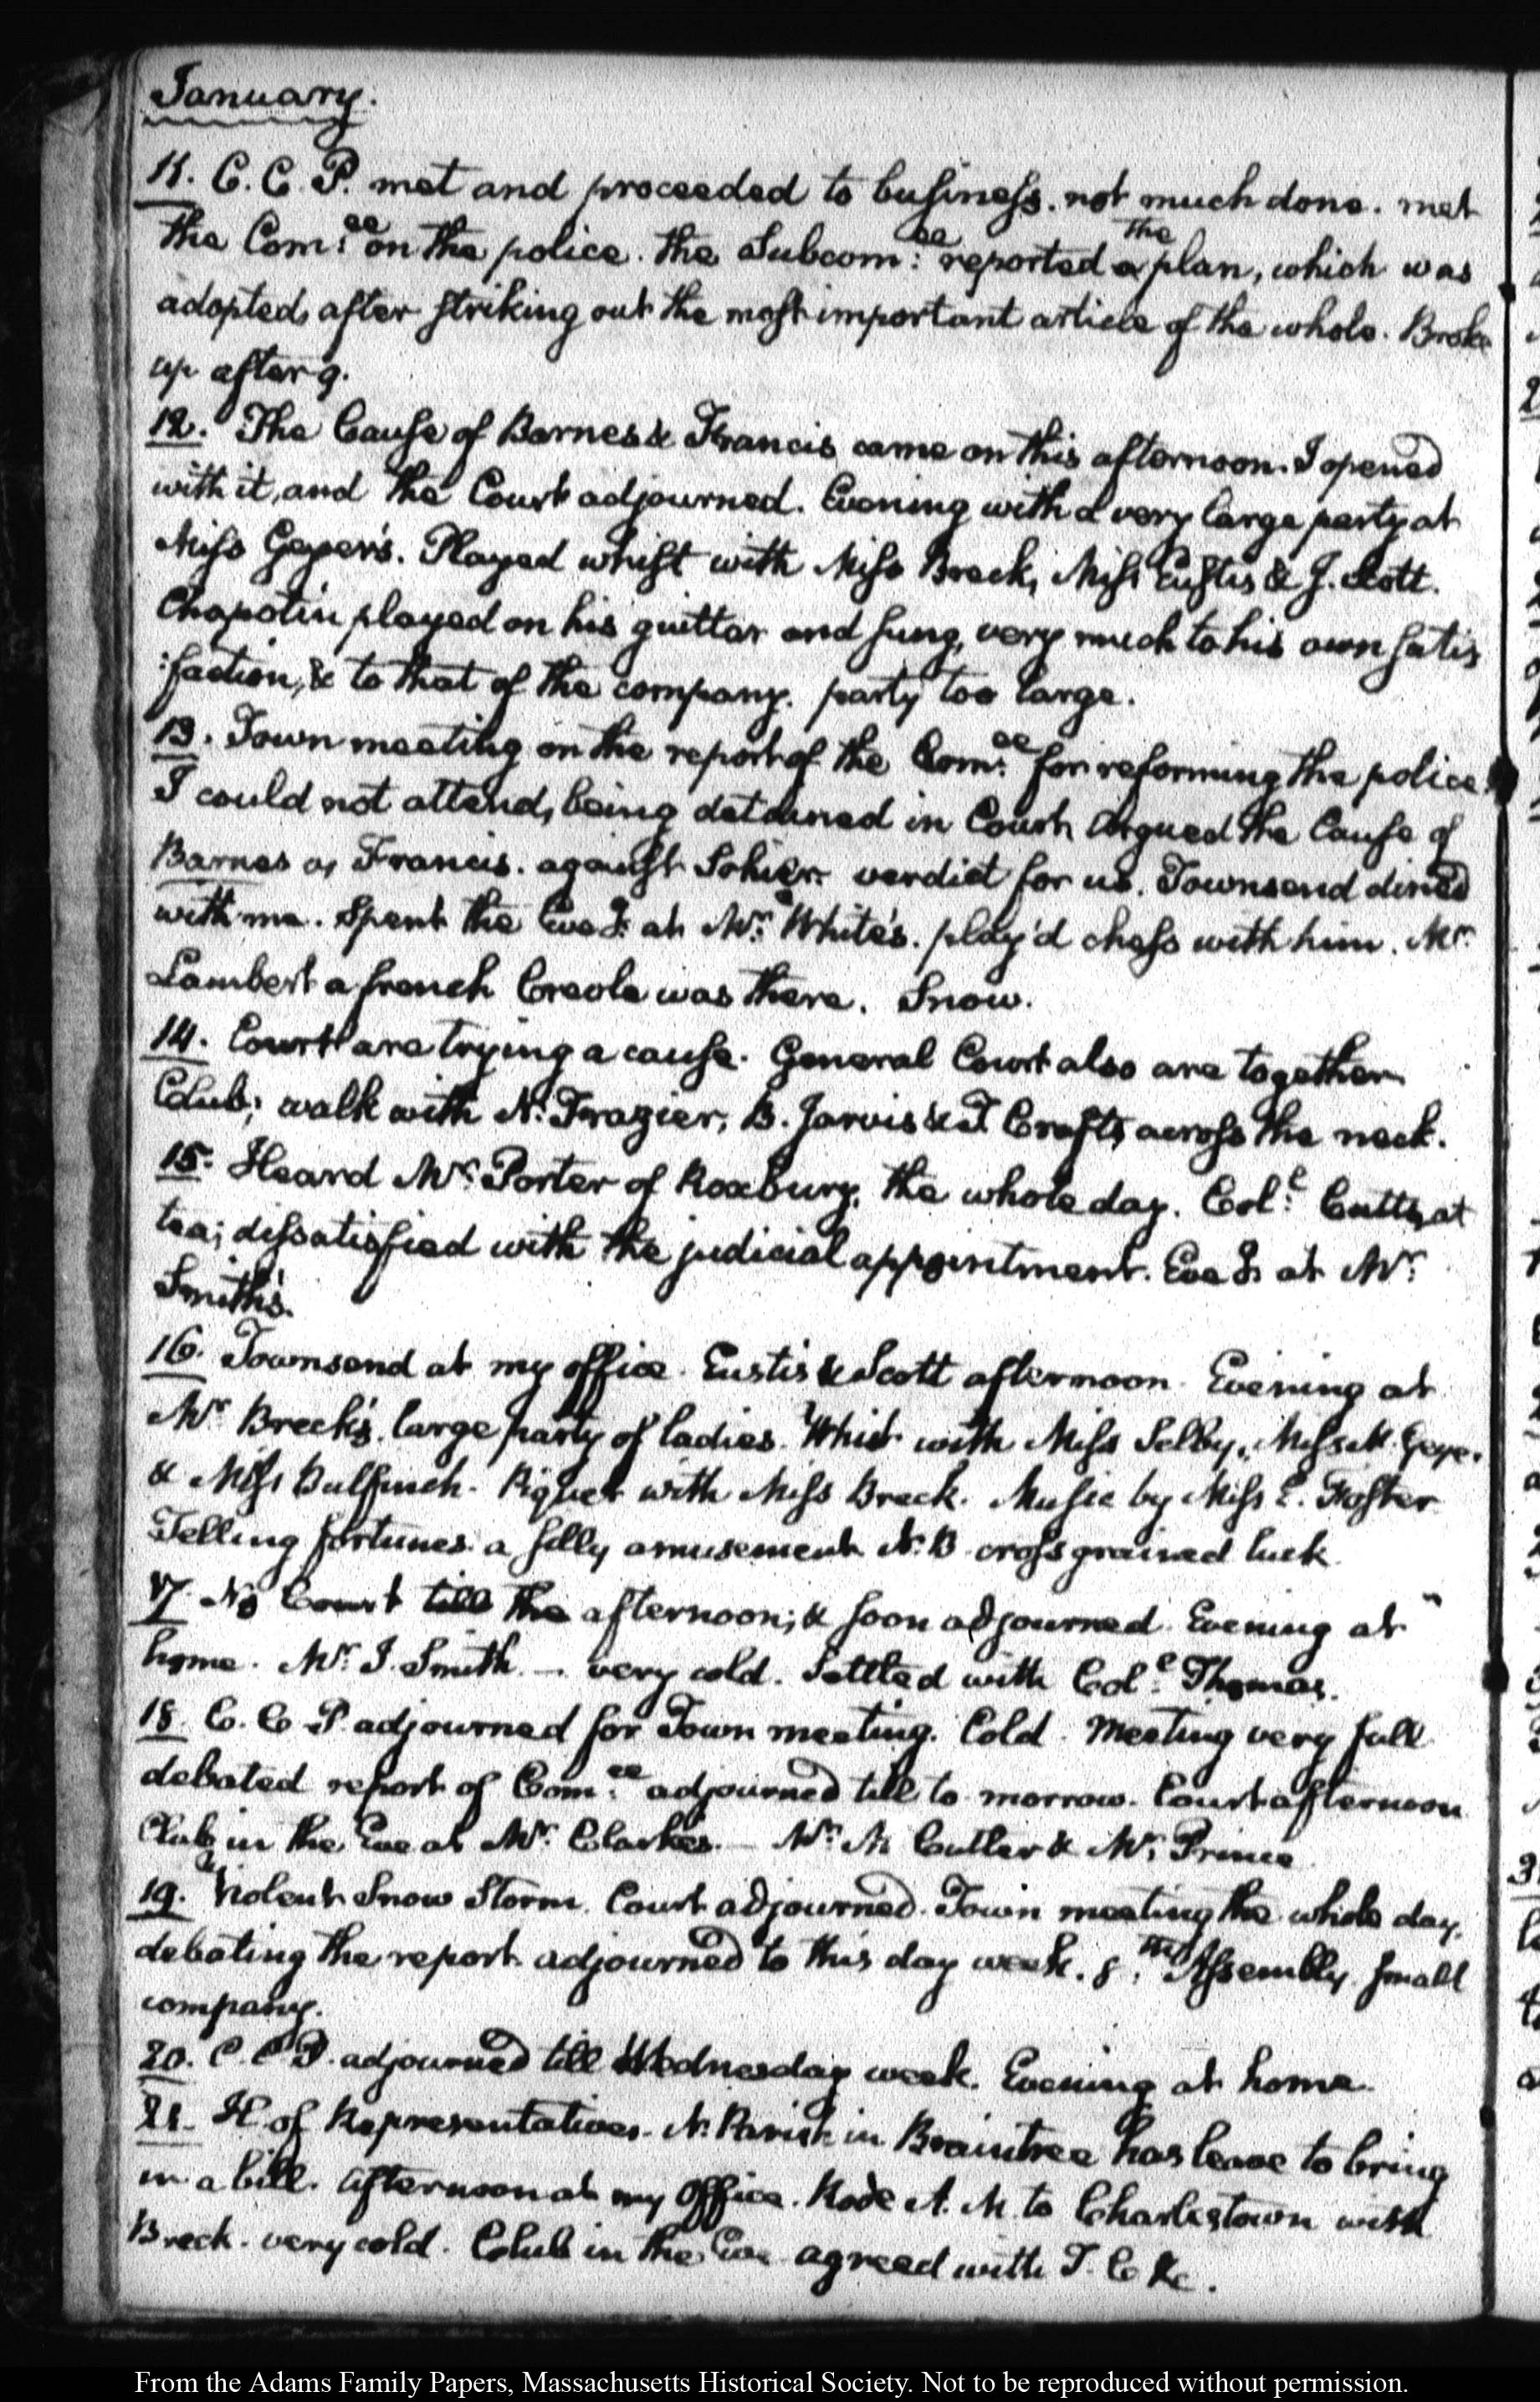 January.
11. C. C. P. met and proceeded to business. not much done. met
the Com:ee on the police. the Subcom:ee reported a the plan, which was
adopted, after striking out the most important article of the whole. Broke
up after 9.
12. The Cause of Barnes & Francis came on this afternoon. I opened
with it, and the Court adjourned. Evening with a very large party at
Miss Geyer's. Played whist with Miss Breck, Miss Eustis & J. Scott.
Chapotin played on his guittar and sung, very much to his own satis
:faction, & to that of the company. party too large.
13. Town meeting on the report of the Com:ee for reforming the police.
I could not attend, being detained in Court. Argued the Cause of
Barnes vs Francis. against Sohier. verdict for us. Townsend dined
with me. Spent the Eveg: at Mr: White's. play'd chess with him. Mr:
Lambert a french Creole was there. Snow.
14. Court are trying a cause. General Court also are together.
Club; walk with N. Frazier, B. Jarvis & T. Crafts across the neck.
15. Heard Mr: Porter of Roxbury, the whole day. Col:l Cutts, at
tea; dissatisfied with the judicial appointment. Eveg: at Mr:
Smith's.
16. Townsend at my office. Eustis & Scott afternoon. Evening at
Mr Breck's. large party of ladies. Whist with Miss Selby, Miss M. Geyer
& Miss Bulfinch. Piquet with Miss Breck. Music by Miss E. Foster
Telling fortunes a silly amusement N. B. cross grained luck
17. No Court till the afternoon; & soon adjourned. Evening at
home. Mr: I. Smith. — very cold. Settled with Col:l Thomas.
18. C. C. P. adjourned for Town meeting. Cold. Meeting very full
debated report of Com:ee adjourned till to morrow. Court afternoon
Club in the Eve at Mr: Clarke's. — Mr: Cutler & Mr: Prince
19. Violent Snow Storm. Court adjourned. Town meeting the whole day.
debating the report. adjourned to this day week. 8:th Assembly. small
company.
20. C. C. P. adjourned till Wednesday week. Evening at home.
21. H. of Representatives. N. Parish in Braintree has leave to bring
in a bill. Afternoon at my Office. Rode A. M. to Charlestown with
Breck. very cold. Club in the Eve agreed with T. C &c.
From the Adams Family Papers, Massachusetts Historical Society. Not to be reproduced without permission.